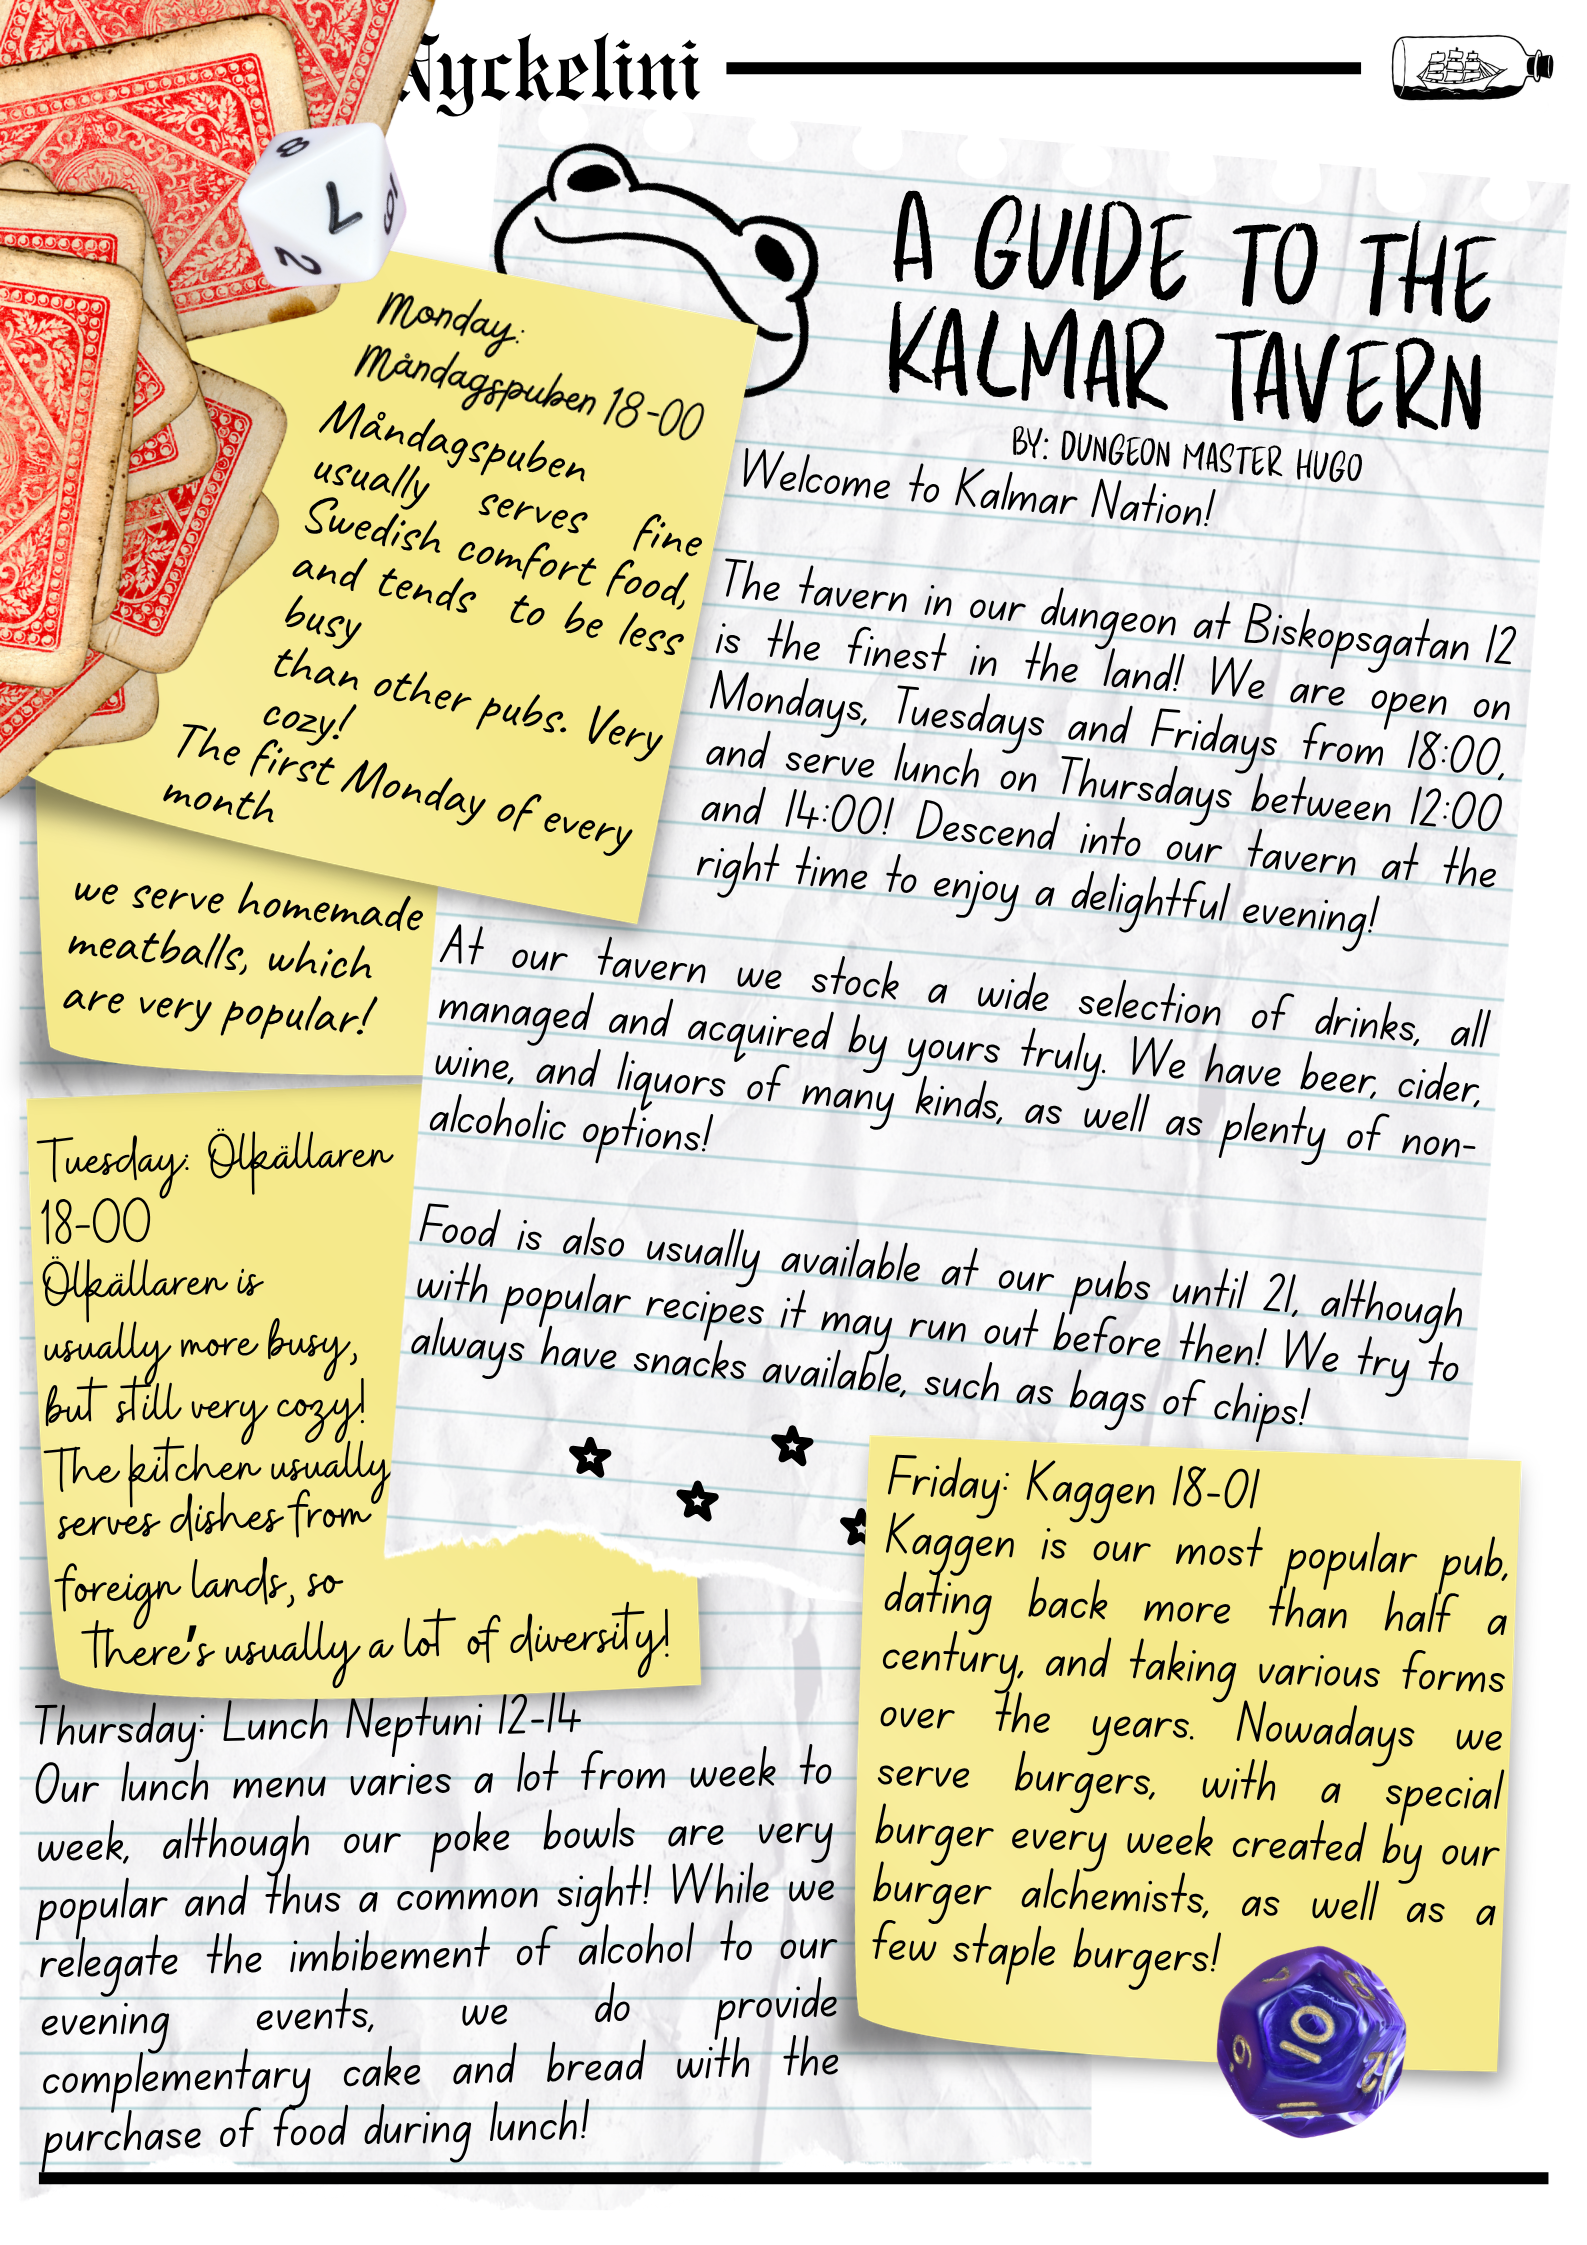 Nyckelini
A GUIDE TO THE
KALMAR TAVERN
BY: DUNGEON MASTER HUGO
Welcome to Kalmar Nation!
The tavern in our dungeon at Biskopsgatan 12
is the finest in the land! We are open on
Mondays, Tuesdays and Fridays from 18:00,
and serve lunch on Thursdays between 12:00
and 14:00! Descend into our tavern at the
right time to enjoy a delightful evening!
At our tavern we stock a wide selection of drinks, all
managed and acquired by yours truly. We have beer, cider,
wine, and liquors of many kinds, as well as plenty of non-
alcoholic options!
Food is also usually available at our pubs until 21, although
with popular recipes it may run out before then! We try to
always have snacks available, such as bags of chips!
Monday:
Måndagspuben 18-00
Måndagspuben
usually serves fine
Swedish comfort food,
and tends to be less
busy
than other pubs. Very
cozy!
The first Monday of every
month
we serve homemade
meatballs, which
are very popular!
Tuesday: Ölkällaren
18-00
Ölkällaren is
usually more busy,
but still very cozy!
The kitchen usually
serves dishes from
foreign lands, so
there's usually a lot of diversity!
Thursday: Lunch Neptuni 12-14
Our lunch menu varies a lot from week to
week, although our poke bowls are very
popular and thus a common sight! While we
relegate the imbibement of alcohol to our
evening events, we do provide
complementary cake and bread with the
purchase of food during lunch!
Friday: Kaggen 18-01
Kaggen is our most popular pub,
dating back more than half a
century, and taking various forms
over the years. Nowadays we
serve burgers, with a special
burger every week created by our
burger alchemists, as well as a
few staple burgers!
8
7
2
10
9
8
12
11